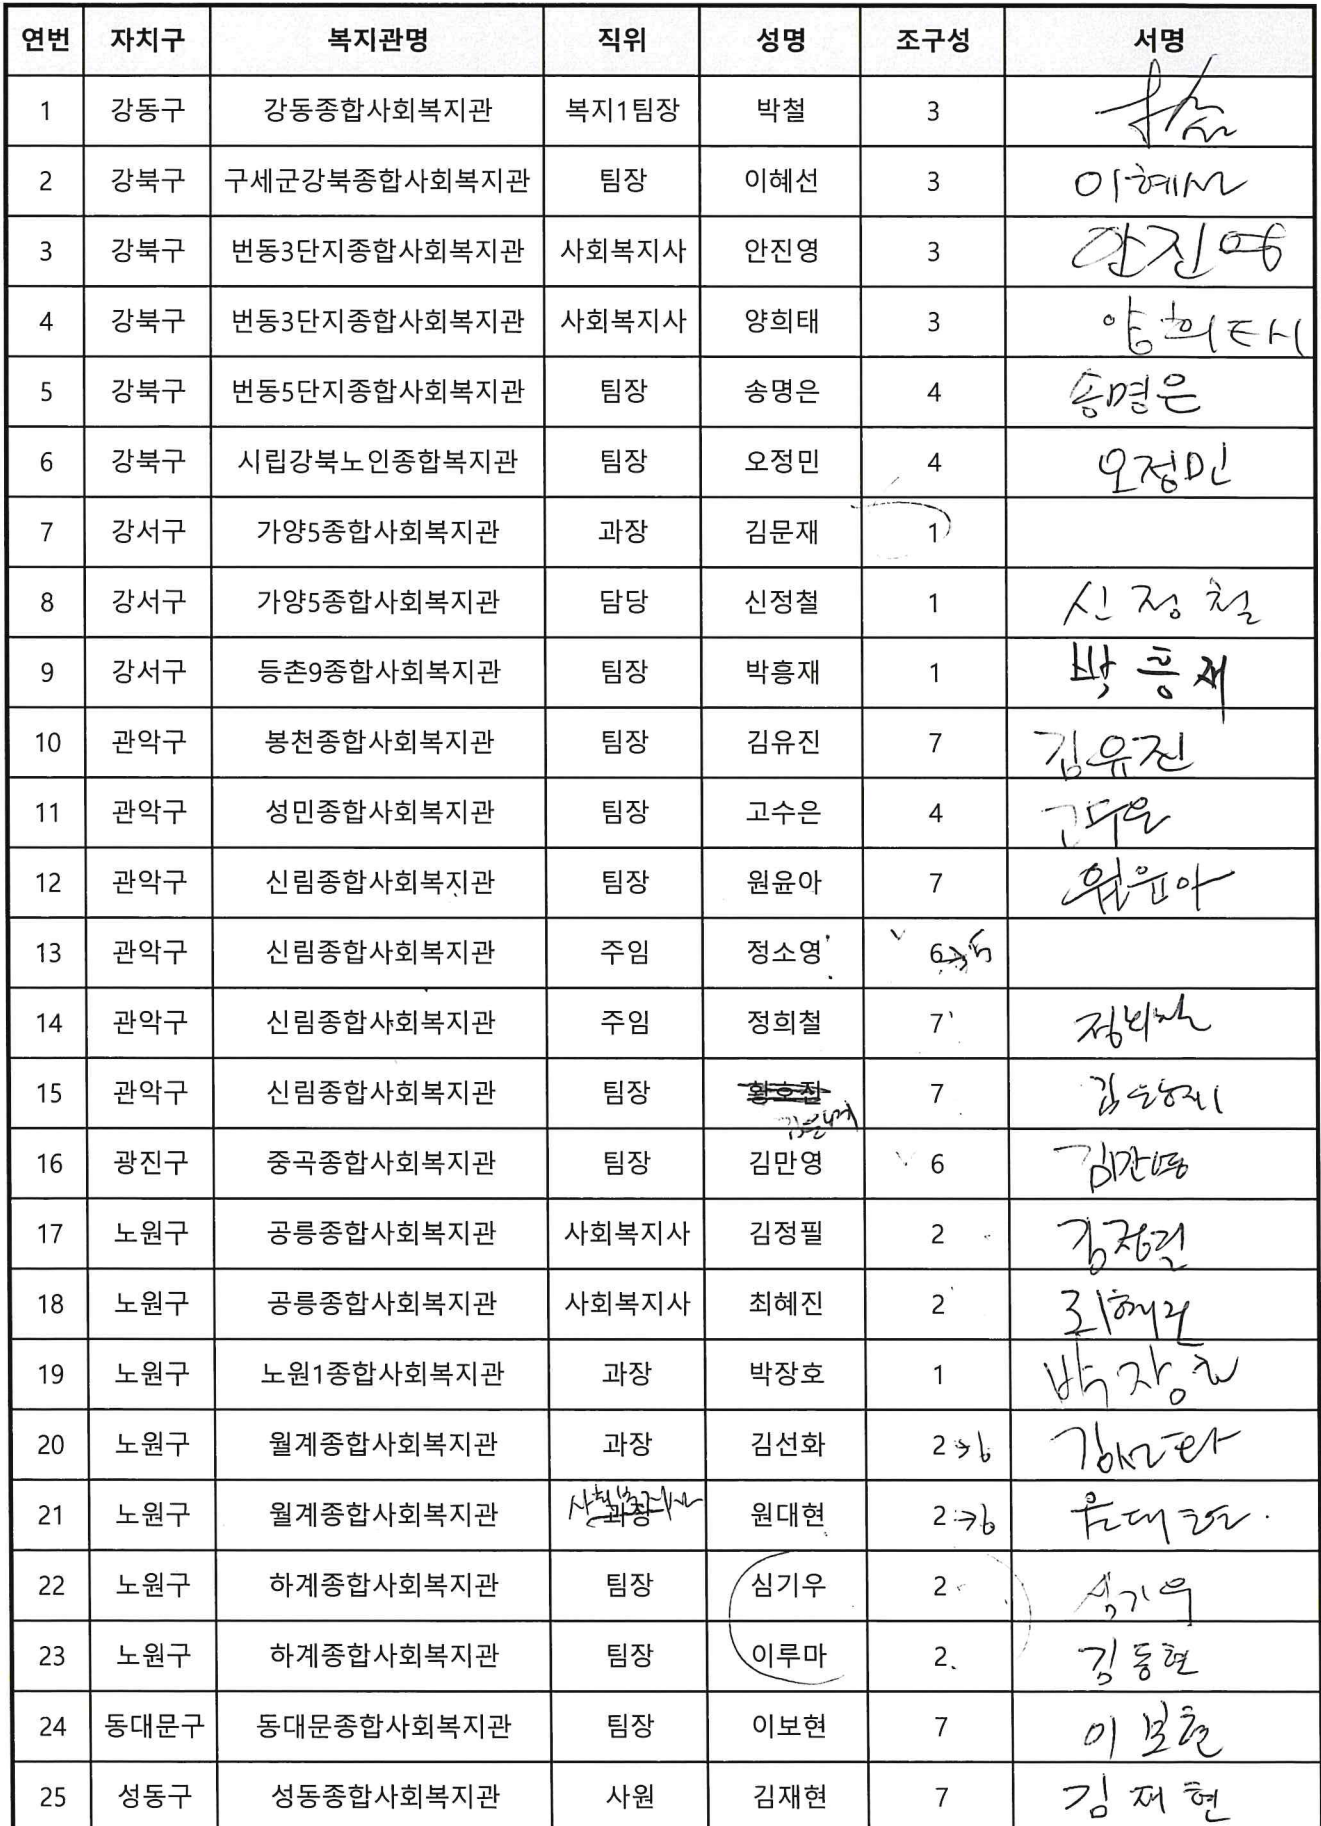 연번 자치구 복지관명 직위 성명 조구성 서명
1 강동구 강동종합사회복지관 복지1팀장 박철 3
2 강북구 구세군강북종합사회복지관 팀장 이혜선 3 이혜선
3 강북구 번동3단지종합사회복지관 사회복지사 안진영 3 안진영
4 강북구 번동3단지종합사회복지관 사회복지사 양희태 3 양희태
5 강북구 번동5단지종합사회복지관 팀장 송명은 4 송명은
6 강북구 시립강북노인종합복지관 팀장 오정민 4 오정민
7 강서구 가양5종합사회복지관 과장 김문재 1
8 강서구 가양5종합사회복지관 담당 신정철 1 신정철
9 강서구 등촌9종합사회복지관 팀장 박흥재 1 박흥재
10 관악구 봉천종합사회복지관 팀장 김유진 7 김유진
11 관악구 성민종합사회복지관 팀장 고수은 4 고수은
12 관악구 신림종합사회복지관 팀장 원윤아 7 원윤아
13 관악구 신림종합사회복지관 주임 정소영 6→5
14 관악구 신림종합사회복지관 주임 정희철 7 정희철
15 관악구 신림종합사회복지관 팀장 황호집 7
16 광진구 중곡종합사회복지관 팀장 김만영 6 김만영
17 노원구 공릉종합사회복지관 사회복지사 김정필 2 김정필
18 노원구 공릉종합사회복지관 사회복지사 최혜진 2 최혜진
19 노원구 노원1종합사회복지관 과장 박장호 1 박장호
20 노원구 월계종합사회복지관 과장 김선화 2→6 김선화
21 노원구 월계종합사회복지관 과장 사회복지사 원대현 2→6 원대현
22 노원구 하계종합사회복지관 팀장 심기우 2 심기우
23 노원구 하계종합사회복지관 팀장 이루마 2 김동현
24 동대문구 동대문종합사회복지관 팀장 이보현 7 이보현
25 성동구 성동종합사회복지관 사원 김재현 7 김재현